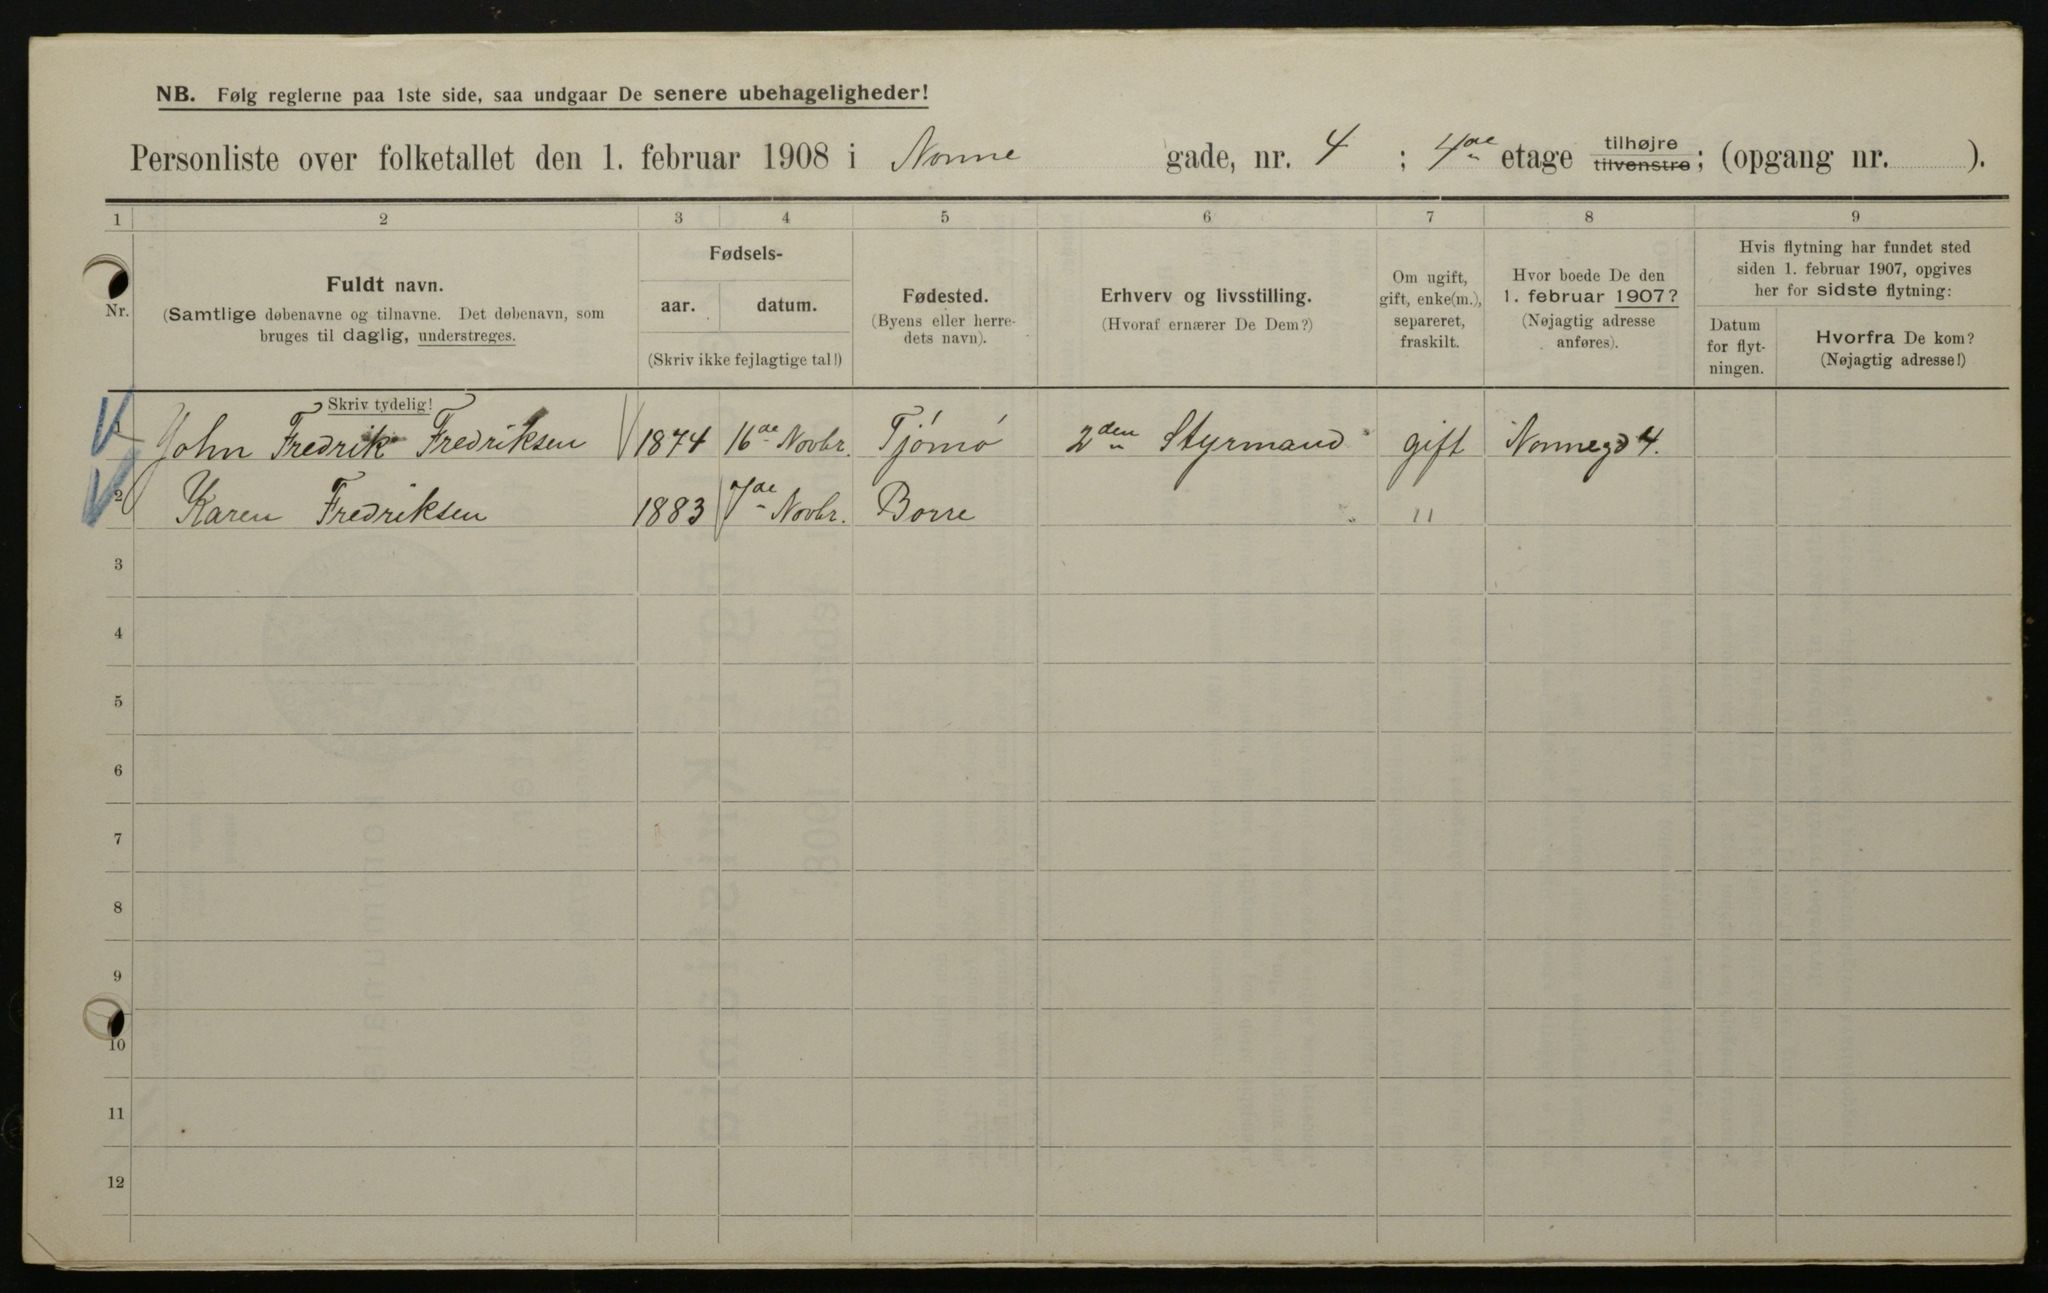 NB. Følg reglerne paa 1ste side, saa undgaar De senere ubehageligheder!
Personliste over folketallet den 1. februar 1908 i Nonne gade, nr. 4 ; 4de etage tilhøjre tilvenstre; (opgang nr. ).
1 2 3 4 5 6 7 8 9
Nr.
Fuldt navn.
(Samtlige døbenavne og tilnavne. Det døbenavn, som
bruges til daglig, understreges.
Fødsels-
aar. datum.
(Skriv ikke fejlagtige tal!)
Fødested.
(Byens eller herre-
dets navn).
Erhverv og livsstilling.
(Hvoraf ernærer De Dem?)
Om ugift,
gift, enke(m.),
separeret,
fraskilt.
Hvor boede De den
1. februar 1907?
(Nøjagtig adresse
anføres).
Hvis flytning har fundet sted
siden 1. februar 1907, opgives
her for sidste flytning:
Datum
for flyt-
ningen.
Hvorfra De kom?
(Nøjagtig adresse!)
Skriv tydelig!
1 John Fredrik Fredriksen 1874 16de Novbr. Tjómó 2den Styrmand gift Nonnegd 4.
2 Karen Fredriksen 1883 7de Novbr. Borre "
3
4
5
6
7
8
9
10
11
12